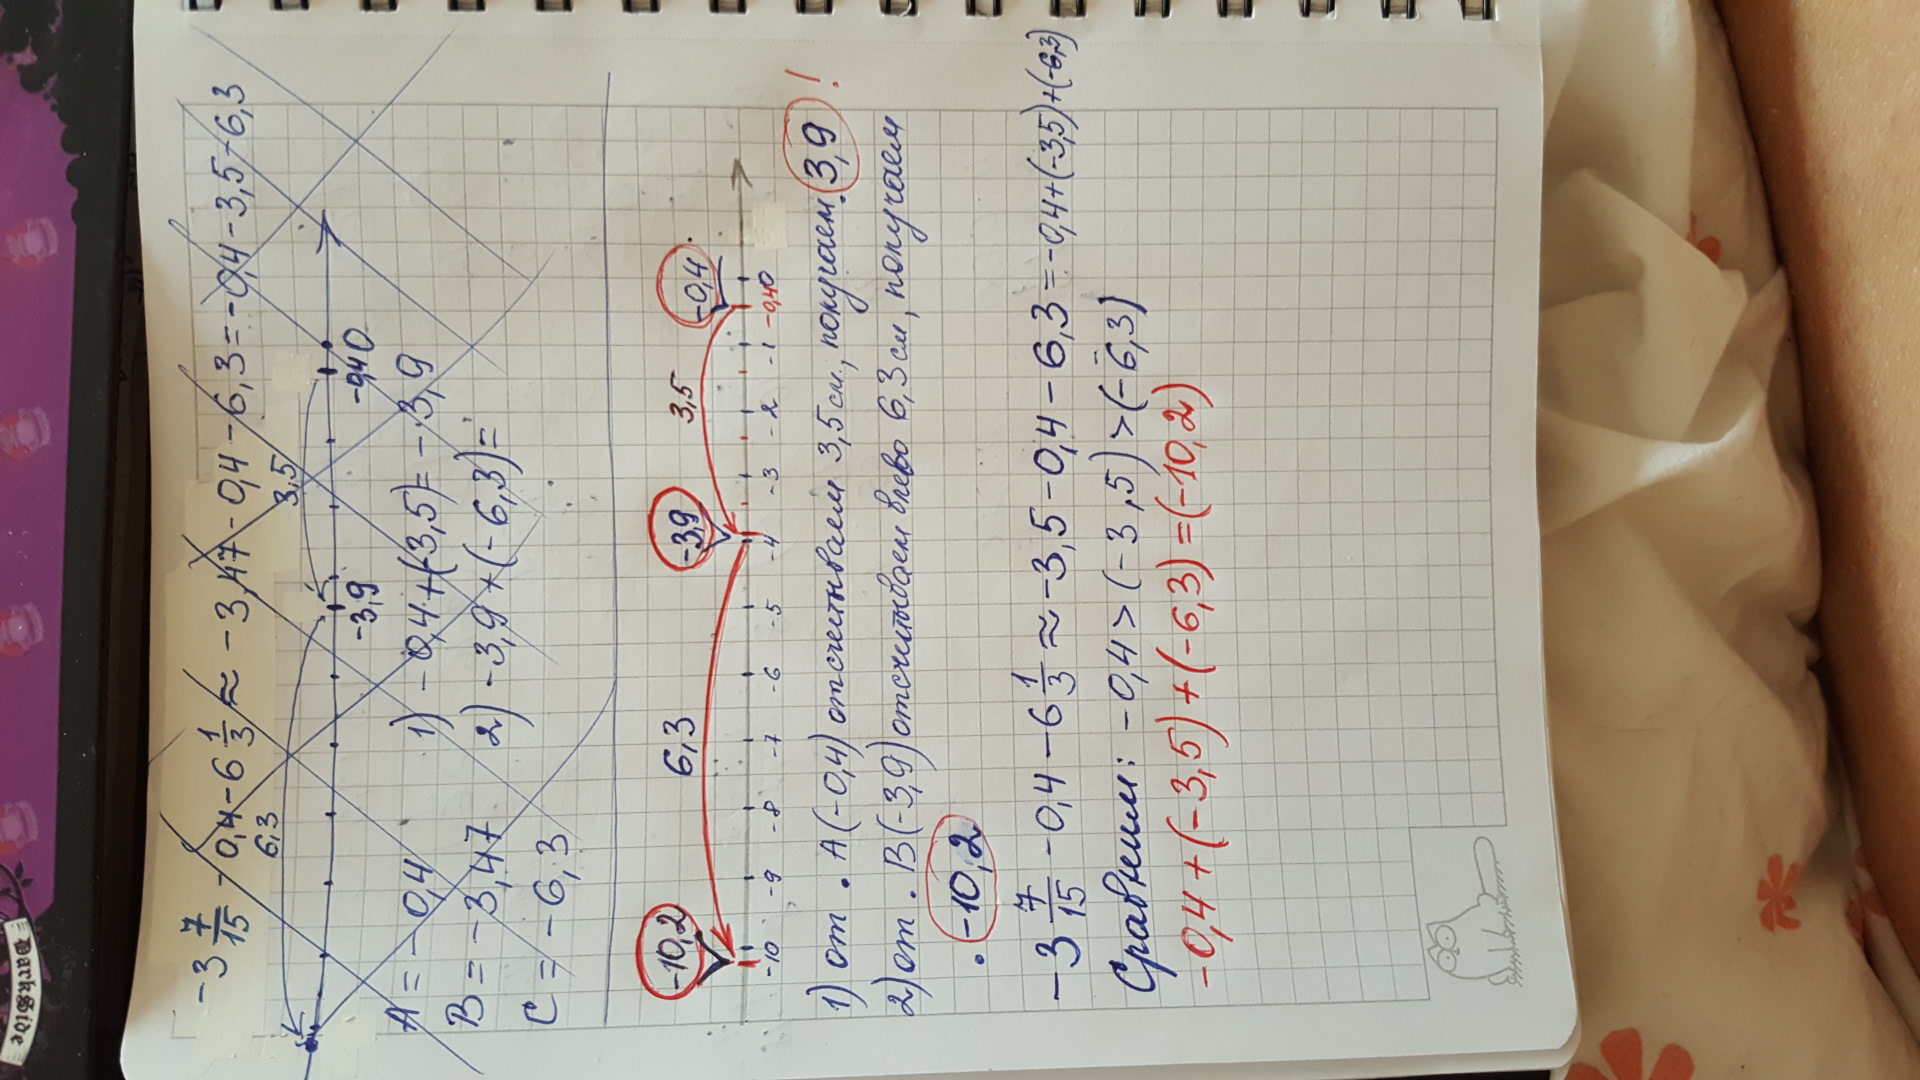 -3 7/15 - 0,4 - 6 1/3 ≈ -3,47 - 0,4 - 6,3 = -0,4 - 3,5 - 6,3
6,3 3,5
-3,9 -0,4 0
A = -0,4 1) -0,4+(-3,5) = -3,9
B = -3,47 2) -3,9+(-6,3)=
C = -6,3
-10,2 6,3 -3,9 3,5 -0,4
-10 -9 -8 -7 -6 -5 -4 -3 -2 -1 -0,4 0
1) от . A(-0,4) отсчитываем 3,5 см., получаем. 3,9 !
2) от . B(-3,9) отсчитываем влево 6,3 см, получаем
. -10,2
-3 7/15 - 0,4 - 6 1/3 ≈ -3,5 - 0,4 - 6,3 = -0,4+(-3,5)+(-6,3)
Сравним: -0,4 > (-3,5) > (-6,3)
-0,4+(-3,5)+(-6,3) = (-10,2)
DarkSide